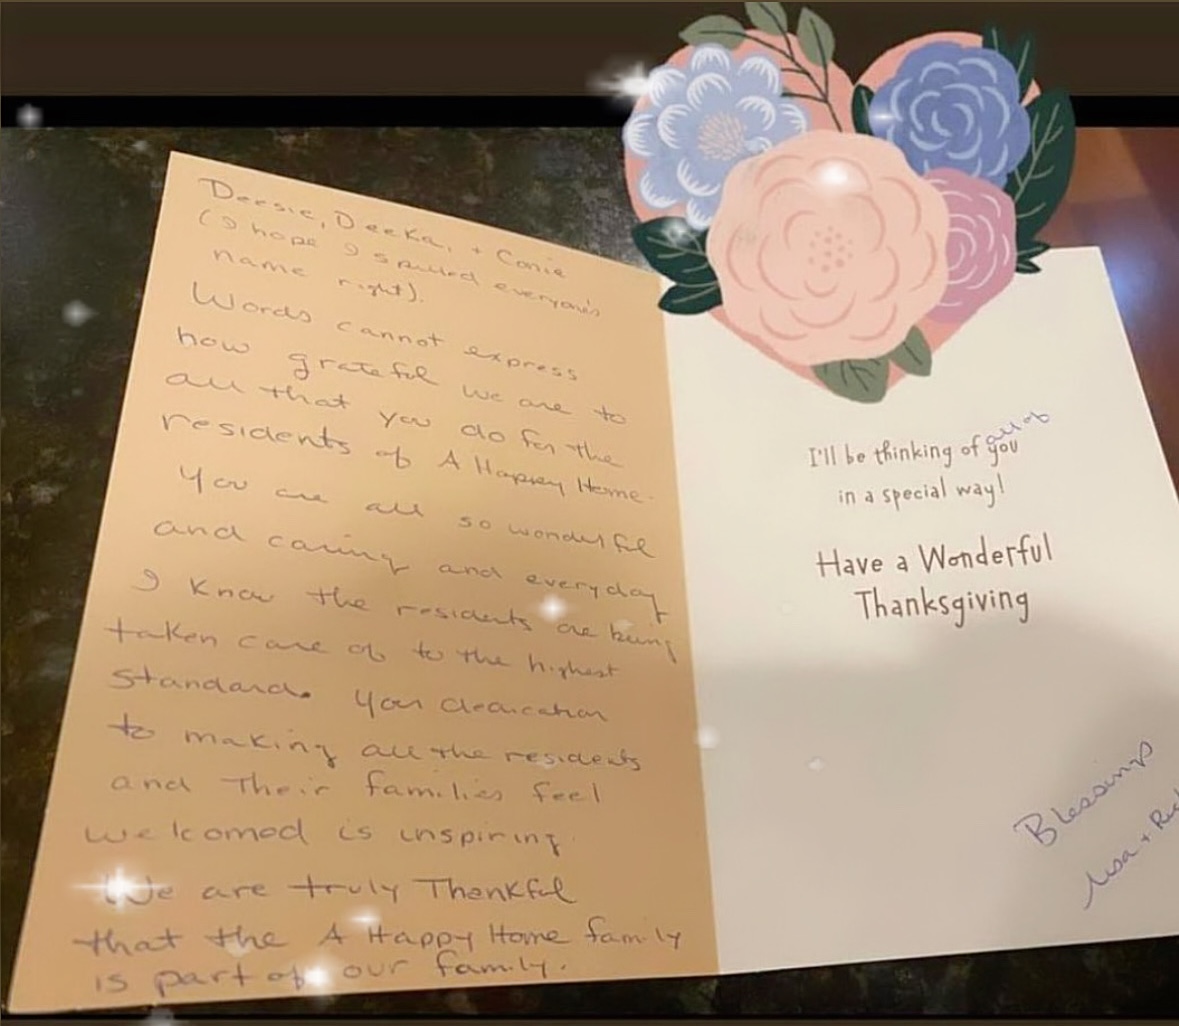 Deesie, Deeka, + Conie
(I hope I spelled everyone's
name right).
Words cannot express
how grateful we are to
all that you do for the
residents of A Happy Home.
You are all so wonderful
and caring and everyday
I know the residents are being
taken care of to the highest
standard. Your dedication
to making all the residents
and their families feel
welcomed is inspiring.
We are truly Thankful
that the A Happy Home family
is part of our family.
all of
I'll be thinking of you
in a special way!
Have a Wonderful
Thanksgiving
Blessings
Lisa +